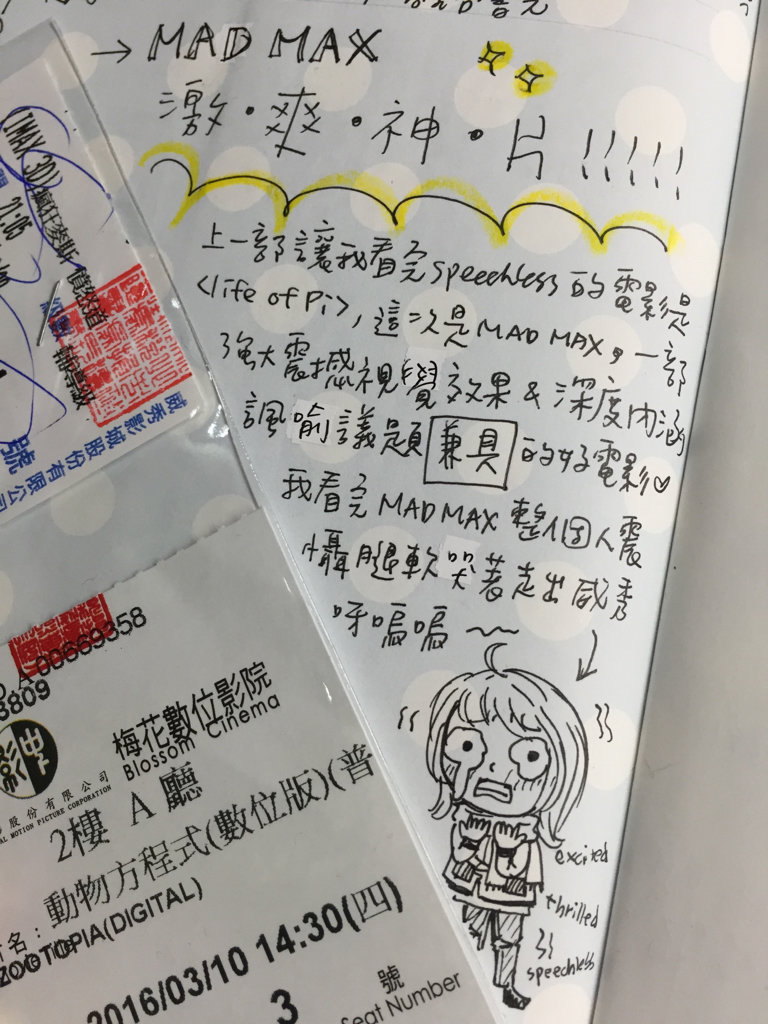 → MAD MAX
激・爽・神・片!!!!!
上一部讓我看完speechless的電影是
<life of Pi>, 這次是MAD MAX，一部
強大震撼視覺效果 & 深度內涵
諷喻議題兼具的好電影♡
我看完MAD MAX 整個人震
懾腿軟哭著走出威秀
呀嗚嗚~
excited
thrilled
speechless
(IMAX 3D)瘋狂麥斯 憤怒道
21:05
號
威秀影城股份有限公司
A00669358
3809
梅花數位影院
Blossom Cinema
股份有限公司
AL MOTION PICTURE CORPORATION
2樓 A 廳
名：動物方程式(數位版)(普
ZOOTOPIA(DIGITAL)
2016/03/10 14:30(四)
3 號
Seat Number